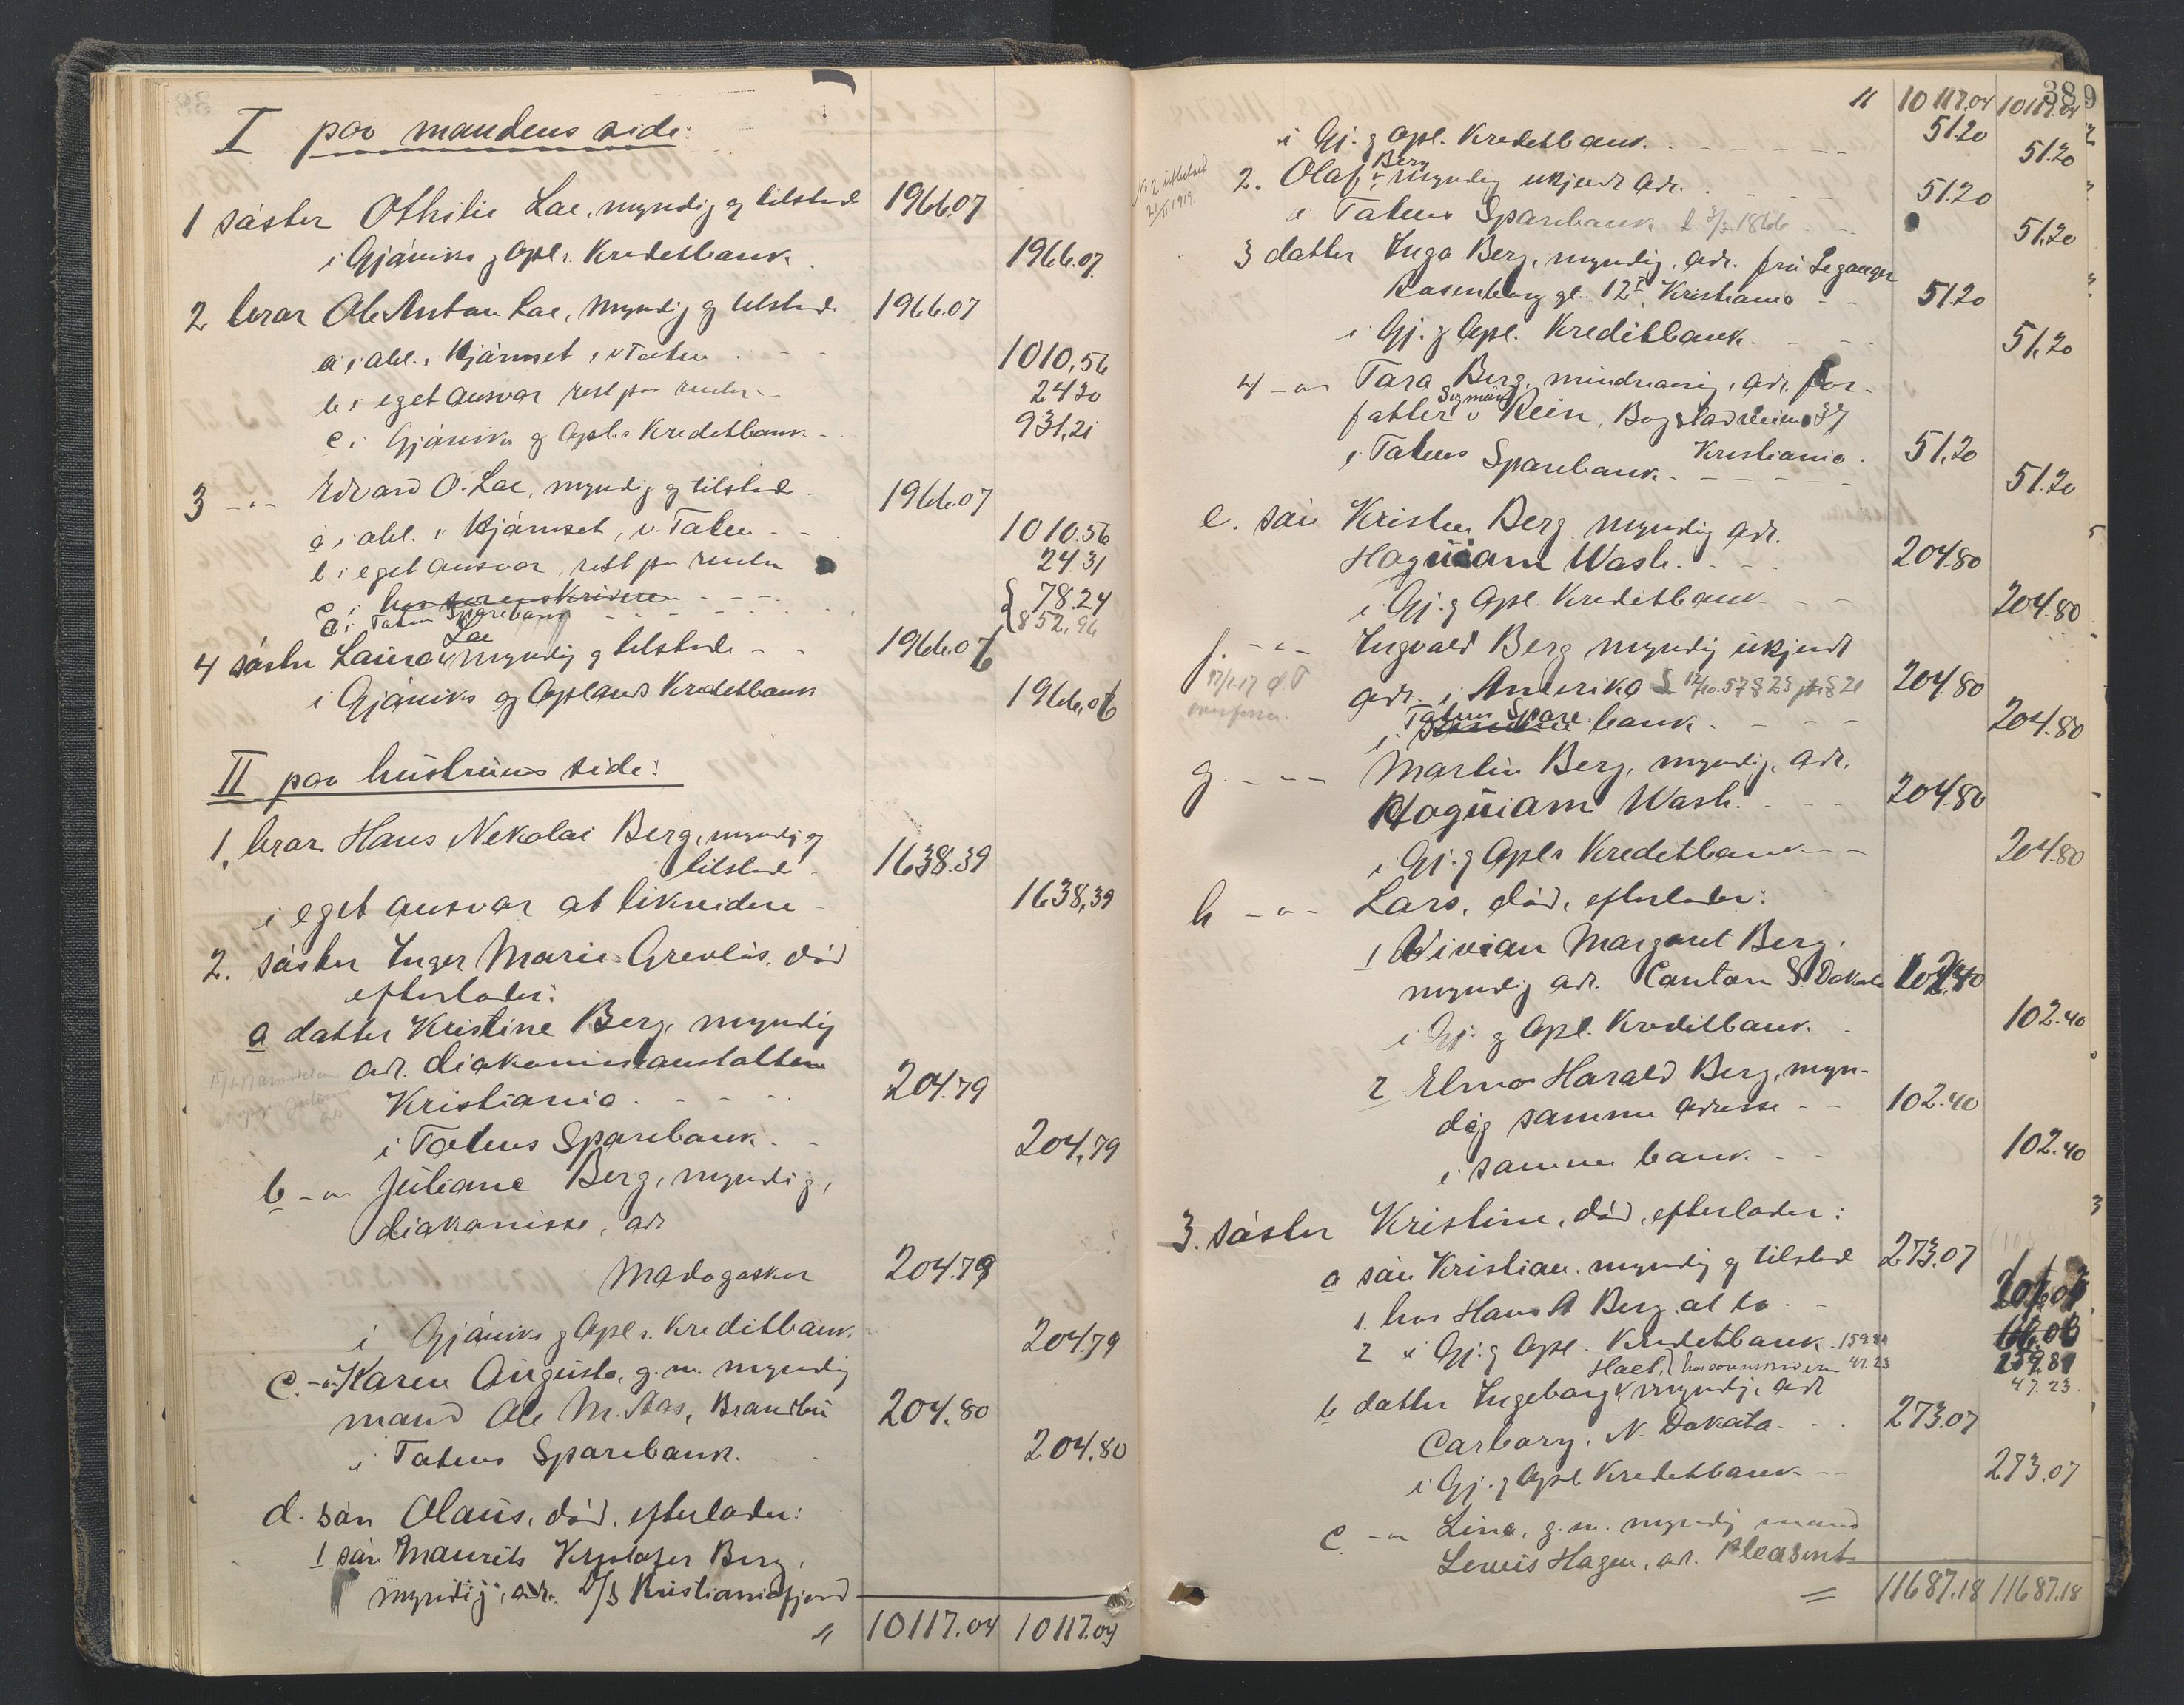 I paa mandens side:
1 søster Othilie Lae, myndig og tilstede 1966.07
i Gjøviks og Opl.s Kreditbank 1966.07
2 bror Ole Anton Lae, myndig og tilstede 1966.07
a i obl. i Hjørnset, v Toten 1010,56
b i eget ansvar rest paa renter 24 30
c i Gjøviks og Opl.s Kreditbank 931,21
3 -"- Edvard O. Lae, myndig og tilstede 1966.07
a i obl. i Hjørnset, v. Toten 1010.56
b i eget ansvar, rest paa renter 24.31
c i hos sorenskriveren 78.24
d i Toten Sparebank 852,96
4 søster Laura Lae, myndig og tilstede 1966.06
i Gjøviks og Oplands Kreditbank 1966,06
II paa hustruens side:
1. bror Hans Nekolai Berg, myndig og
tilstede 1638.39
i eget ansvar at likvidere 1638,39
2. søster Inger Marie Grevløs, død
efterlader:
a datter Kristine Berg, myndig
adr. diakonisseanstalten
Kristiania 204.79
i Totens Sparebank 204,79
b -"- Juliane Berg, myndig,
diakonisse, adr
Madagaskar 204.79
i Gjøviks og Opl.s Kreditbank 204,79
c. -"- Karen Augusta, g. m. myndig
mand Ole M. Aas, Brandbu 204.80
i Totens Sparebank. 204.80
d. søn Olaus, død, efterlader:
1 søn Maurits Kristofer Berg,
myndig, adr. D/S Kristianiafjord
" 10117.04 10117.04
389
" 10117.04 10117.04
i Gj. og Opl. Kreditbank. 51.20 51.20
No 2 utbetalt
1919
2. Olaf Berg, myndig ukjendt adr. 51.20
i Totens Sparebank f 3/2 1866 51,20
3 datter Inga Berg, myndig, adr. fru Leganger
Rosenborg gt. 12 I, Kristiania 51.20
i Gj. og Opl. Kreditbank. 51,20
4 -"- Tora Berg, mindreaarig, adr. for-
fatter Sigmund Rein, Bogstadveien 37
Kristiania. 51,20
i Totens Sparebank. 51.20
e. søn Kristen Berg myndig adr.
Hoquiam Wash. 204.80
i Gj. og Opl. Kreditbank 204.80
f. -"- Ingvald Berg myndig ukjendt
adr. i Amerika 204.80
i Toten Spare bank. 204.80
g. -"- Martin Berg, myndig, adr.
Hoquiam Wash. 204.80
i Gj. og Opl.s Kreditbank 204.80
h -"- Lars, død, efterlader:
1 Vivian Margaret Berg,
myndig adr. Canton S. Dakota 102.40
i Gj. og Opl. Kreditbank. 102.40
2 Elmo Harald Berg, myn-
dig samme adresse 102.40
i samme bank. 102.40
3. søster Kristine, død, efterlader:
a søn Kristian, myndig og tilstede 273.07
1. hos Hans A Berg at ta
2 i Gj. og Opl. Kreditbank. 159.81 159.81
hos sorenskriveren 47.23 47.23
b datter Ingeborg Hael, myndig, adr
Carbory, N. Dakota. 273.07
i Gj. og Opl Kreditbank 273,07
c -"- Lina, g. m. myndig mand
Lewis Hagen, adr. Pleasent
= 11687.18 11687.18